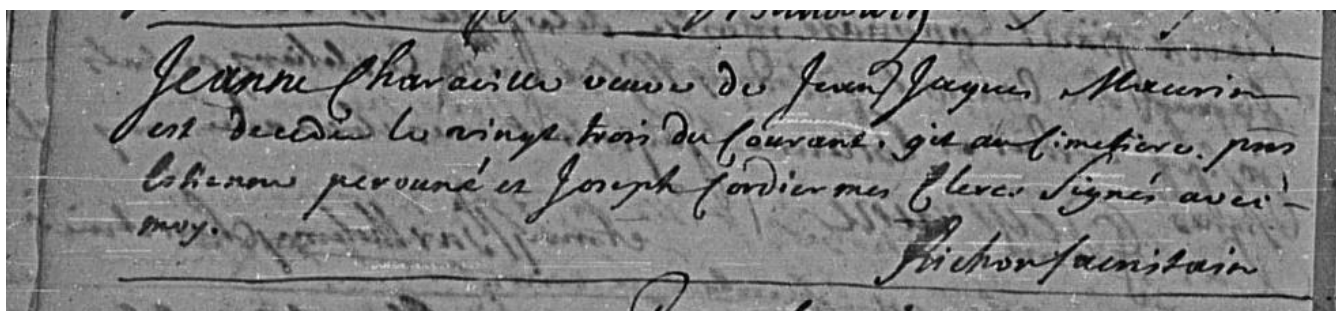 Jeanne Charaville veuve de Jean Jaques Maurin
est decedée le vingt trois du Courant. git au Cimetiere. pnts
Estienne perouné et Joseph Cordier mes Clercs Signés avec
moy.
Richon sacristain